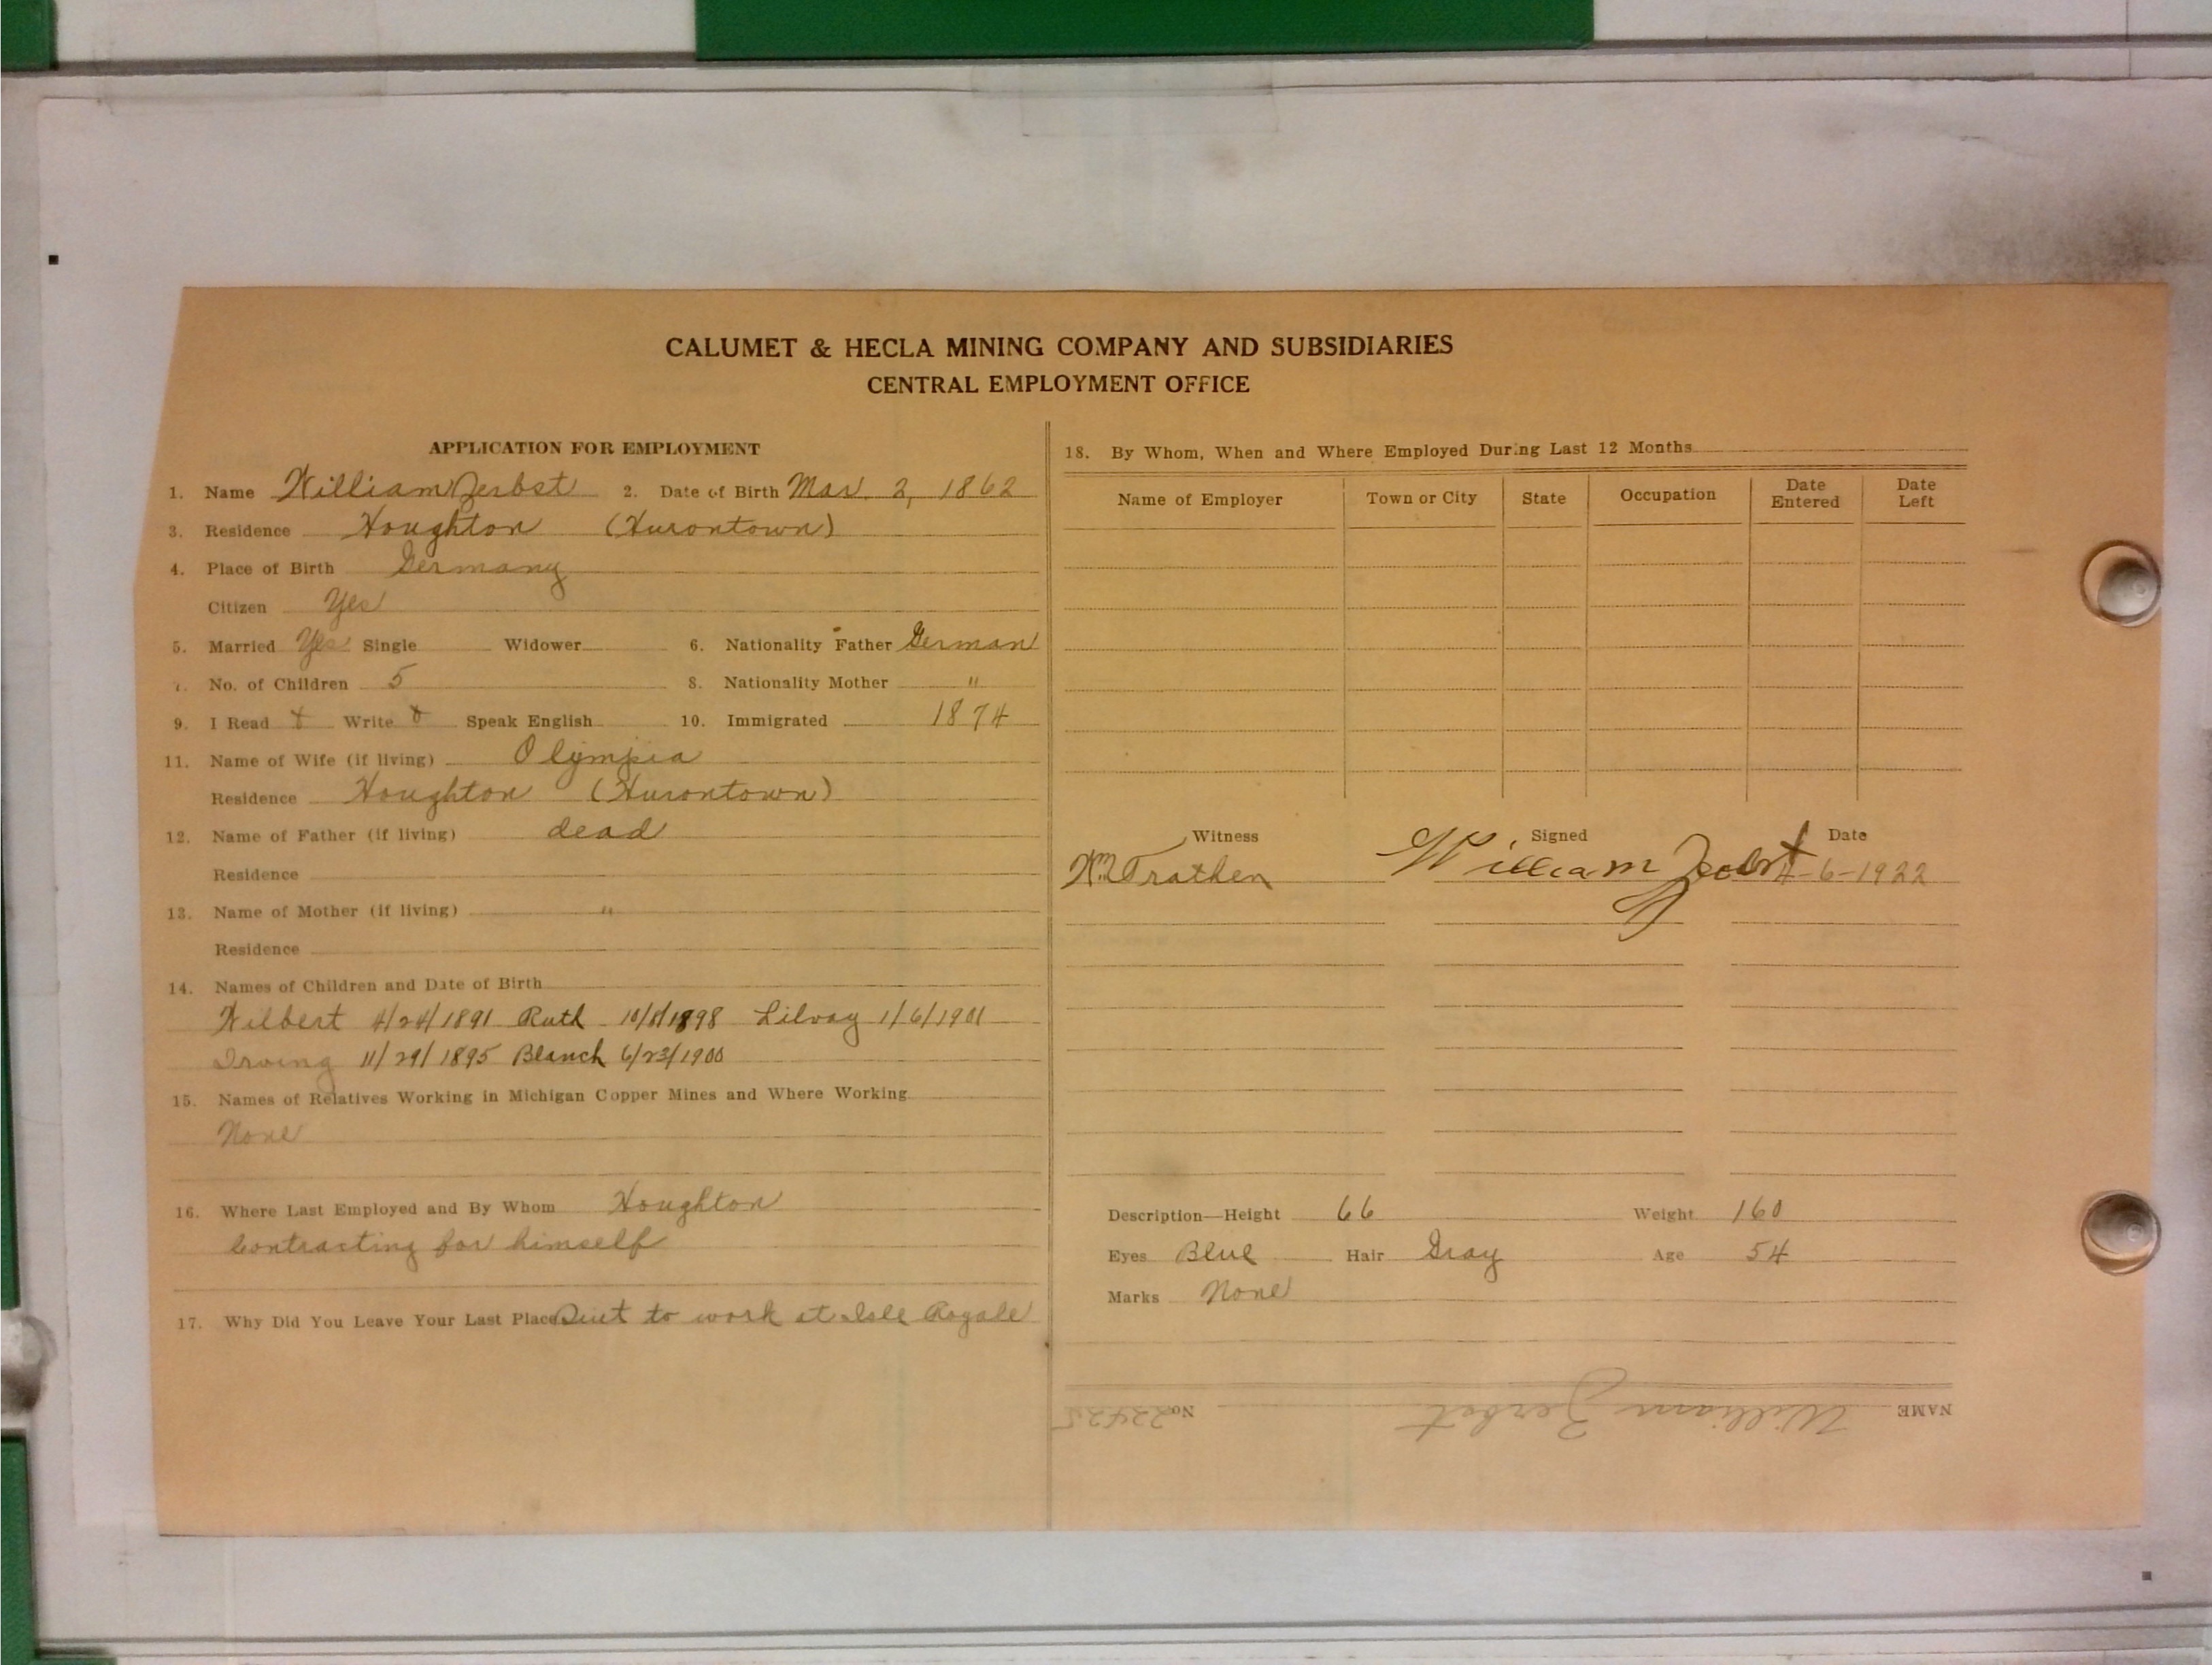 CALUMET & HECLA MINING COMPANY AND SUBSIDIARIES
CENTRAL EMPLOYMENT OFFICE
APPLICATION FOR EMPLOYMENT
1. Name William Zerbst 2. Date of Birth Mar. 2, 1862
3. Residence Houghton (Hurontown)
4. Place of Birth Germany
Citizen Yes
5. Married Yes Single Widower 6. Nationality Father German
7. No. of Children 5 8. Nationality Mother "
9. I Read Write Speak English 10. Immigrated 1874
11. Name of Wife (if living) Olympia
Residence Houghton (Hurontown)
12. Name of Father (if living) dead
Residence
13. Name of Mother (if living) "
Residence
14. Names of Children and Date of Birth
Wilbert 4/24/1891 Ruth 10/8/1898 1/6/1901
Irving 11/29/1895 Blanch 6/23/1900
15. Names of Relatives Working in Michigan Copper Mines and Where Working
None
16. Where Last Employed and By Whom Houghton
Contracting for himself
17. Why Did You Leave Your Last Place Quit to work at Isle Royale
18. By Whom, When and Where Employed During Last 12 Months
Name of Employer Town or City State Occupation Date Entered Date Left
Witness Signed Date
Wm Trathen William Zerbst 4-6-1922
Description—Height 66 Weight 160
Eyes Blue Hair Gray Age 54
Marks None
NAME William Zerbst No. 22425